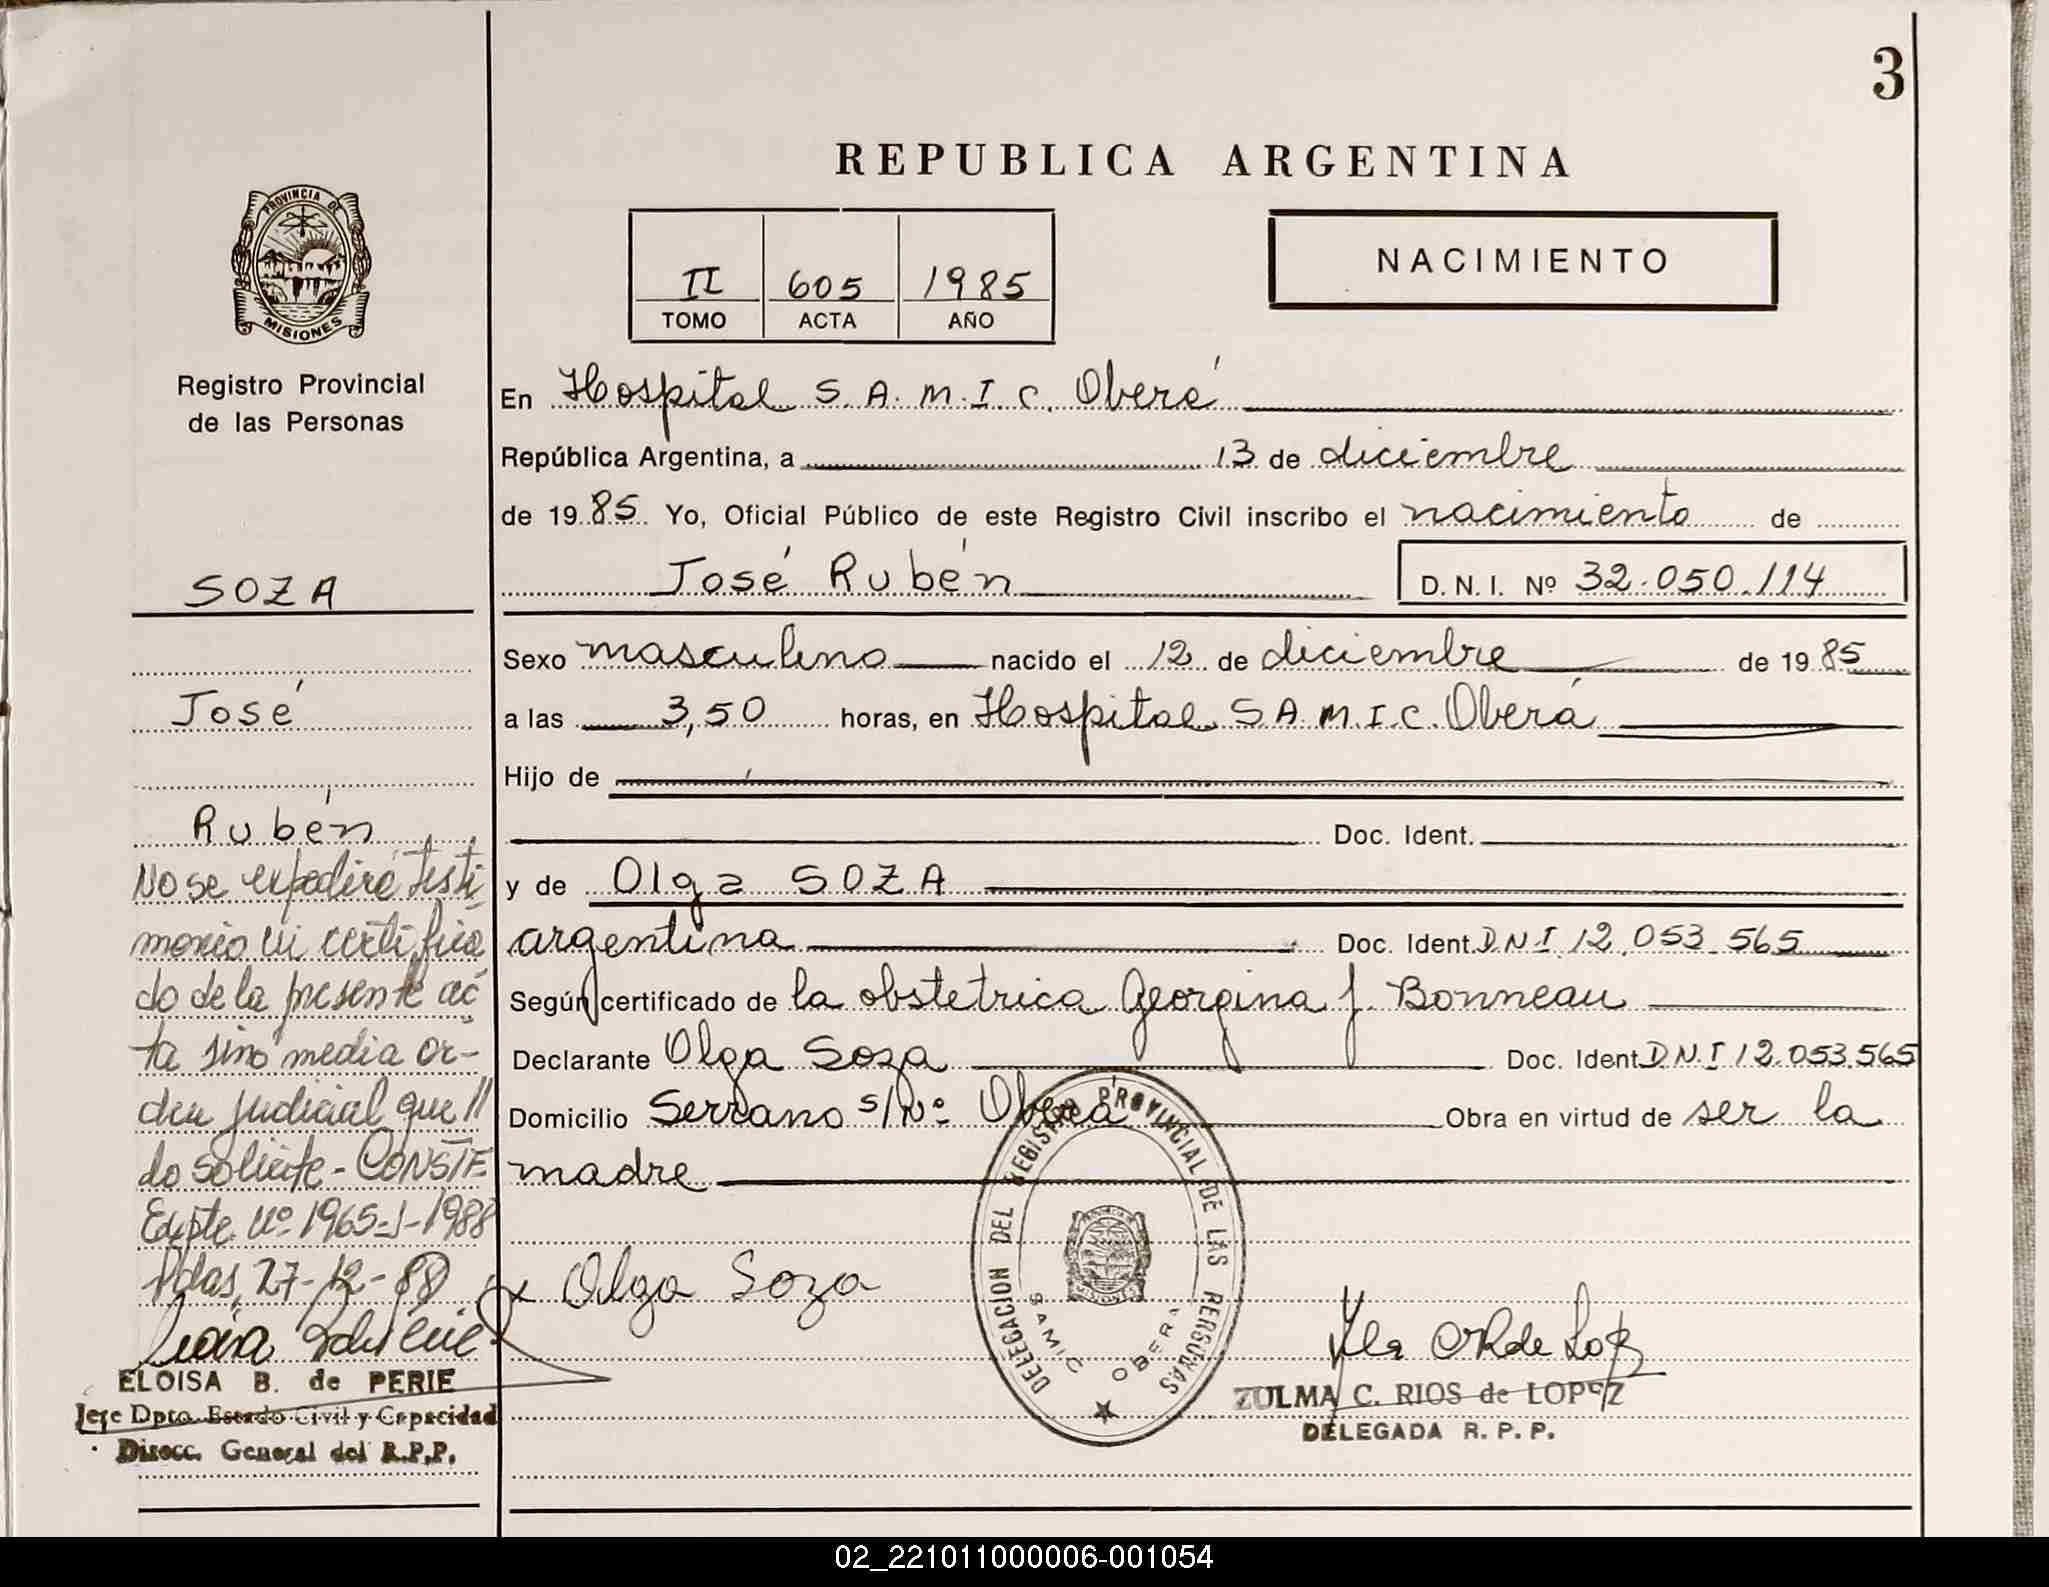 3
REPUBLICA ARGENTINA
PROVINCIA DE
MISIONES
Registro Provincial
de las Personas
II 605 1985
TOMO ACTA AÑO
NACIMIENTO
En Hospital S.A.M.I.C. Oberá
República Argentina, a 13 de diciembre
de 1985 Yo, Oficial Público de este Registro Civil inscribo el nacimiento de
José Rubén D.N.I. Nº 32.050.114
Sexo masculino nacido el 12 de diciembre de 1985
a las 3,50 horas, en Hospital S.A.M.I.C. Oberá
Hijo de
Doc. Ident.
y de Olga SOZA
argentina Doc. Ident. D.N.I. 12.053.565
Según certificado de la obstetrica Georgina J. Bonneau
Declarante Olga Soza Doc. Ident. D.N.I 12.053.565
Domicilio Serrano s/Nº Oberá Obra en virtud de ser la
madre
Olga Soza
DELEGACION DEL REGISTRO PROVINCIAL DE LAS PERSONAS
SAMIC OBERA
ZULMA C. RIOS de LOPEZ
DELEGADA R.P.P.
SOZA
José
Rubén
No se expedirá testi
monio ni certifica
do de la presente ac
ta sino media or-
den judicial que //
lo solicite - CONSTE
Expte. Nº 1965-J-1988
Pdas, 27-12-88
ELOISA B. de PERIE
Jefe Dpto. Estado Civil y Capacidad
Direcc. General del R.P.P.
02_221011000006-001054